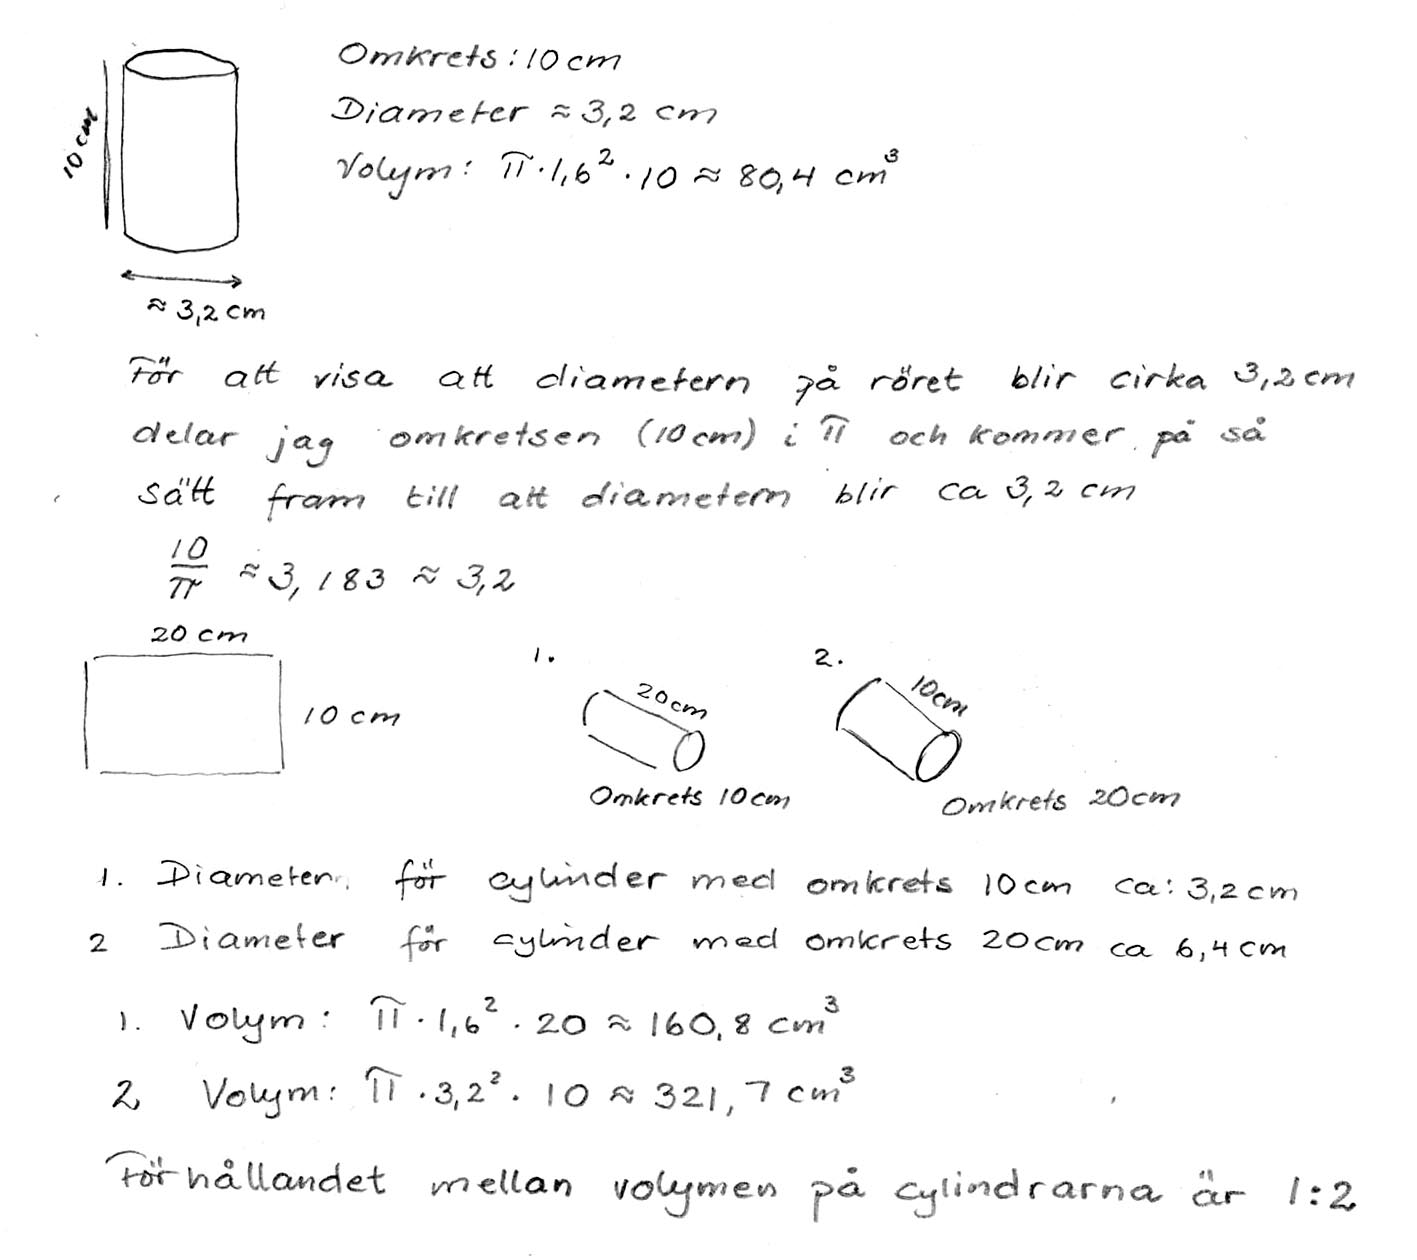 10 cm
Omkrets: 10 cm
Diameter ≈ 3,2 cm
Volym: π · 1,6² · 10 ≈ 80,4 cm³
≈ 3,2 cm
För att visa att diametern på röret blir cirka 3,2 cm
delar jag omkretsen (10 cm) i π och kommer på så
sätt fram till att diametern blir ca 3,2 cm
10/π ≈ 3,183 ≈ 3,2
20 cm
10 cm
1.
20 cm
Omkrets 10 cm
2.
10 cm
Omkrets 20 cm
1. Diameter för cylinder med omkrets 10 cm ca: 3,2 cm
2 Diameter för cylinder med omkrets 20 cm ca 6,4 cm
1. Volym: π · 1,6² · 20 ≈ 160,8 cm³
2 Volym: π · 3,2² · 10 ≈ 321,7 cm³
Förhållandet mellan volymen på cylindrarna är 1:2